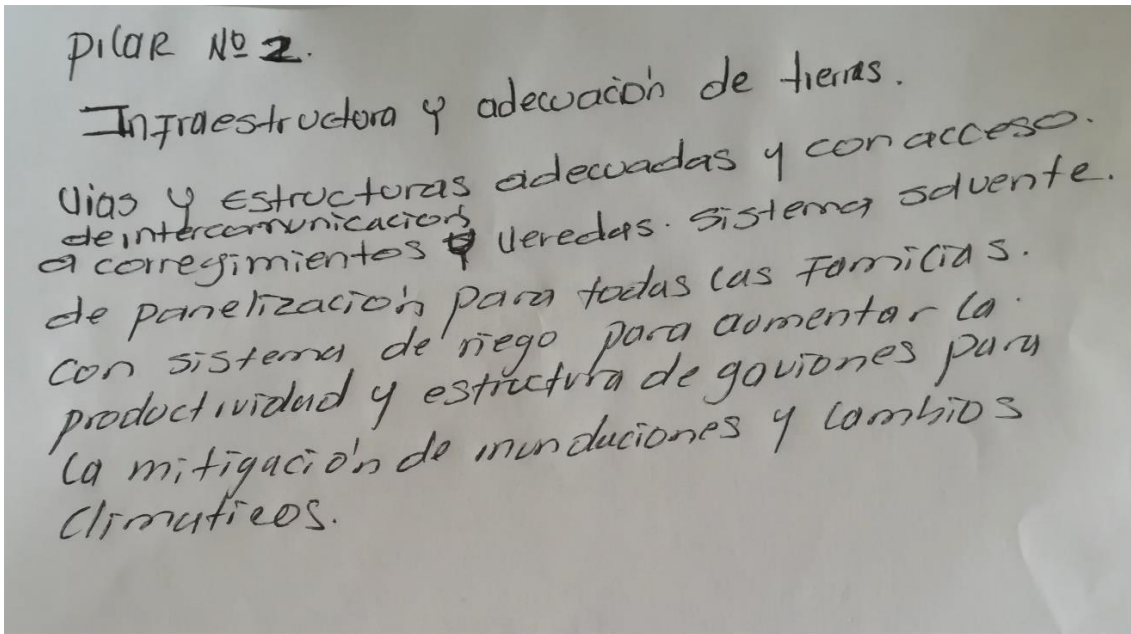 Pilar Nº 2.
Infraestructura y adecuación de tierras.
Vias y Estructuras adecuadas y con acceso.
de intercomunicacion
a corregimientos y veredas. sistema solvente.
de panelización para todas las familias.
con sistema de riego para aumentar la
productividad y estructura de gaviones para
la mitigación de inundaciones y cambios
climaticos.